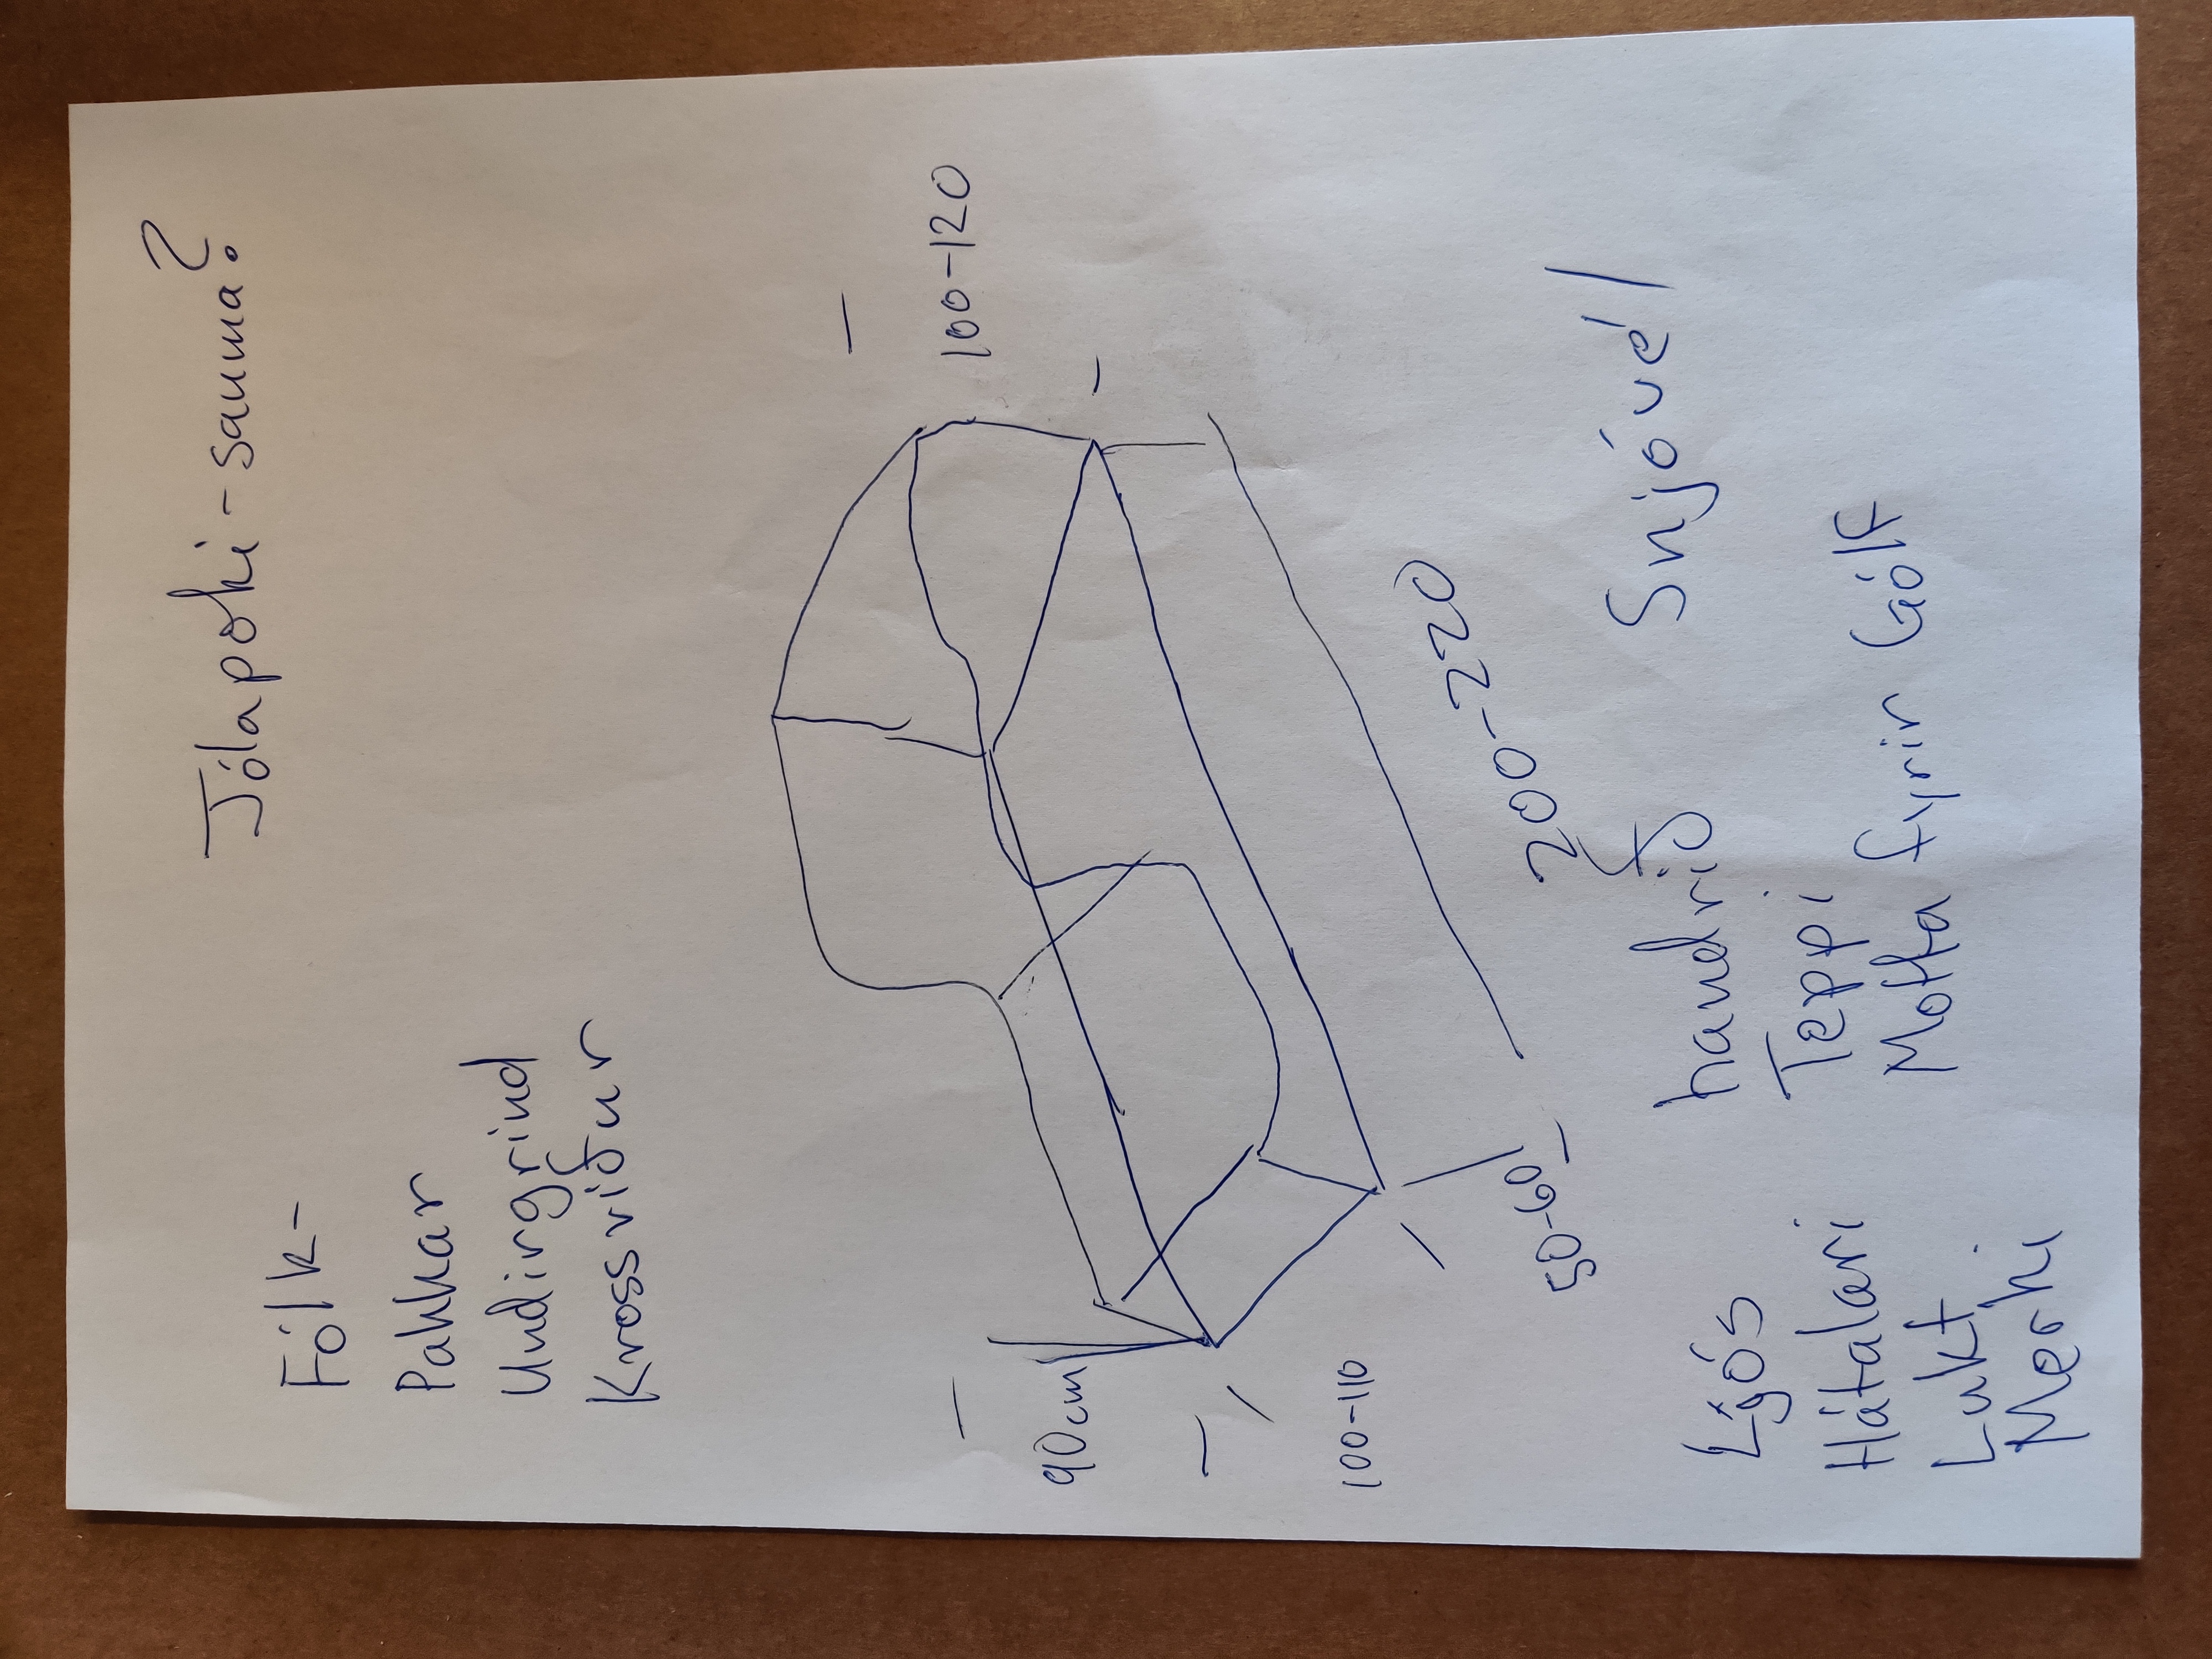 Jólapoki-sauma?
Fólk-
Pakkar
Undirgrind
Krossviður
100-120
90cm
100-110
50-60
200-220
Ljós
Hátalari
Lukt
Merki
handrið
Teppi
Motta fyrir Gólf
Snjóvél